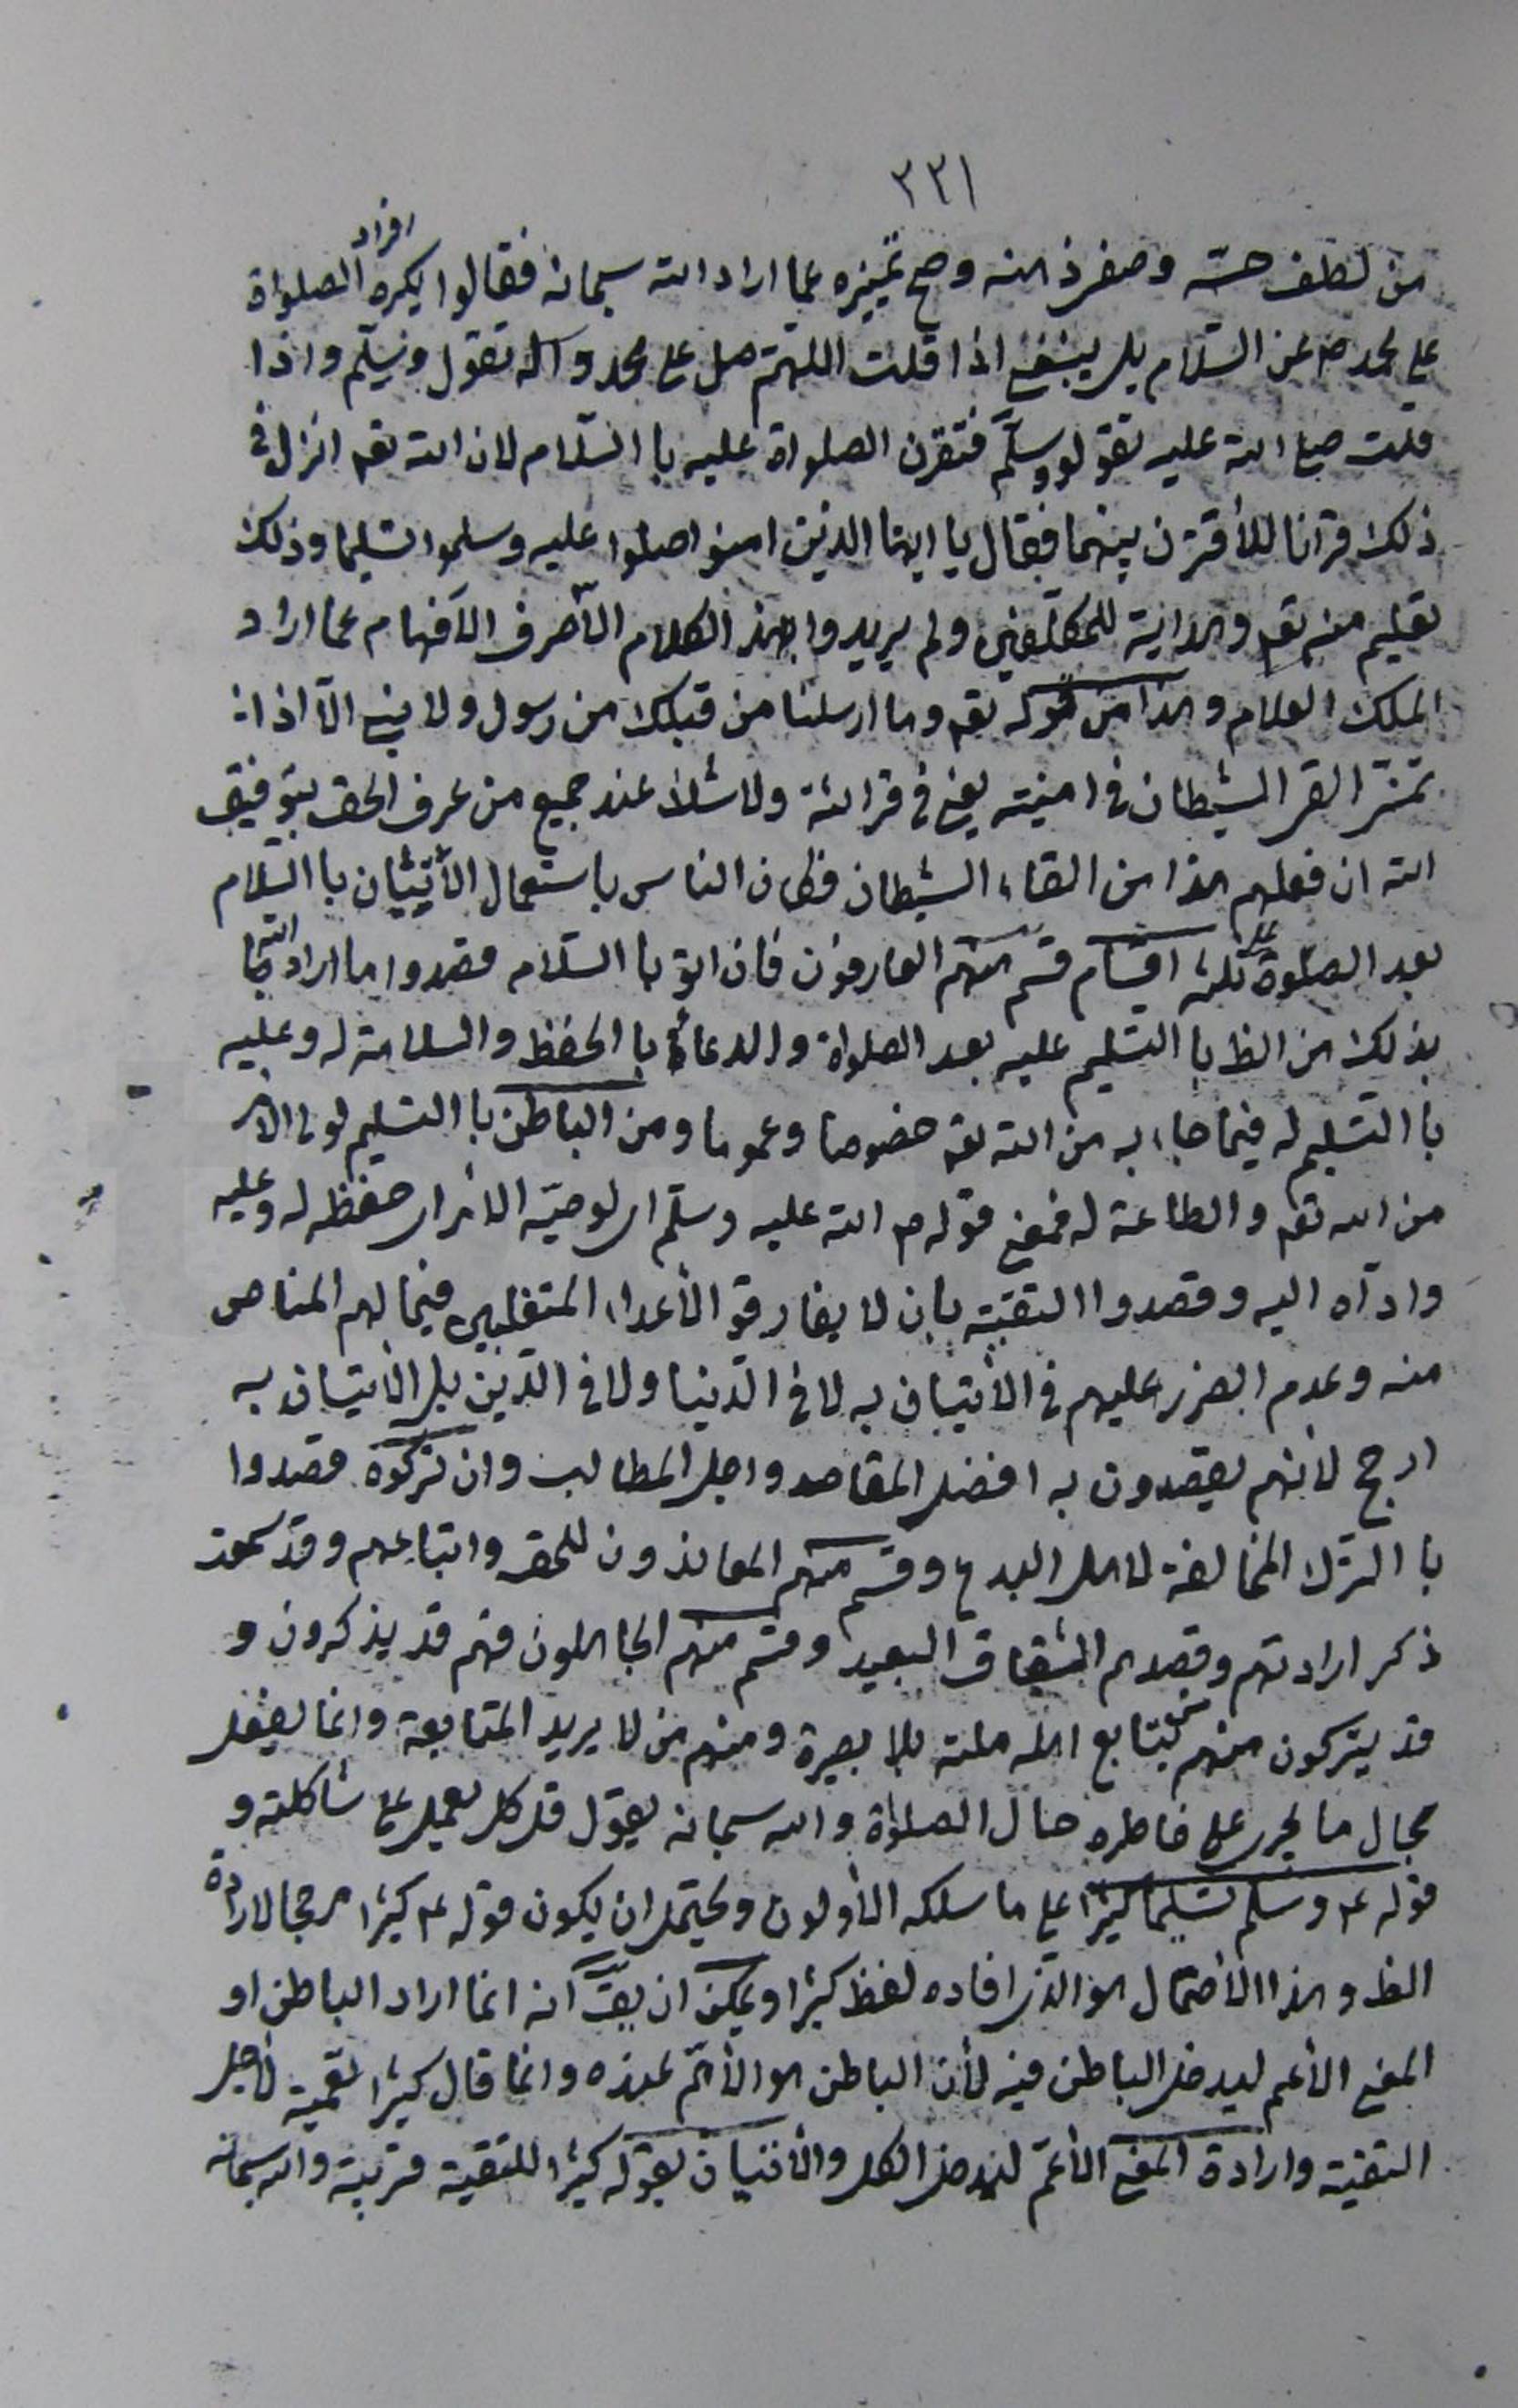 ٣٣١
من لطف حسّه وصفى ذهنه وصح تميزه عما اراد الله سبحانه فقالوا يكره افراد الصلواة
على محمد ص عن السّلام بل ينبغى اذا قلت اللهمّ صل على محمد وآله تقول وسلّم واذا
قلت صلى الله عليه تقول وسلّم فتقرن الصلواة عليه باالسّلام لان الله تعم انزل فى
ذلك قرآنا للأقترن بينهما فقال يا ايها الذين امنوا صلوا عليه وسلموا تسليما وذلك
تعليم منه تعم وهداية للمكلّفين ولم يريدوا بهذ الكلام الّا صرف الأفهام عما اراد
الملك العلام وهذا من قوله تعم وما ارسلنا من قبلك من رسول ولا نبى الّا اذا
تمنى القى الشيطان فى امنيته يعنى فى قرائته ولا شك عند جميع من عرف الحق بتوفيق
الله ان فعلهم هذا من القاء الشيطان فكان الناس باستعمال الأتيان باالسّلام
بعد الصلوة على ثلثة اقسام قسم منهم العارفون فان اتو باالسّلام قصدوا ما اراد الله تعا
بذلك من الظ باالتسليم عليه بعد الصلواة والدعاء باالحفظ والسلامة له وعليه
باالتسليم له فيما جاء به من الله تعم خصوصا وعموما ومن الباطن باالتسليم لولى الأمر
من الله تعم والطاعة له فمعنى قوله ص الله عليه وسلّم اى لوصيّه الأمر اى حفظه له وعليه
وادّاه اليه وقصدوا التقيّه بان لا يفارقو الأعداء المتغلبين فيما لهم المناص
منه وعدم الضرر عليهم فى الأتيان به لا فى الدّنيا ولا فى الدّين بل الأتيان به
ارجح لأنهم يقصدون به افضل المقاصد واجل المطالب وان تركوه قصدوا
باالترك المخالفة لاهل البدع وقسم منهم المعاندون للحق واتباعهم وقد سمعت
ذكر ارادتهم وقصدهم الشقاق البعيد وقسم منهم الجاهلون فهم قد يذكرون و
قد يتركون منهم من يتابع اهله ملته بلا بصيرة ومنهم من لا يريد المتابعة وانما يفعل
بحال ما يجرى على خاطره حال الصلواة والله سبحانه يقول قل كل يعمل على شاكلته و
قوله ع وسلم تسليما كثيرا على ما سلكه الأولون ويحتمل ان يكون قوله ع كثيرا مرجحا لارادة
الظ وهذا الأحتمال هو الذى افاده لفظ كثيرا ويمكن ان يقّ انه انما اراد الباطن او
المعنى الأعم ليدخل الباطن فيه لأن الباطن هو الأهمّ عنده وانما قال كثيرا تعمية لأجل
التقيّه وارادة المعنى الأعمّ ليدخل الكل والأتيان بقوله كثيرا للتقية قريبة والله سبحانه